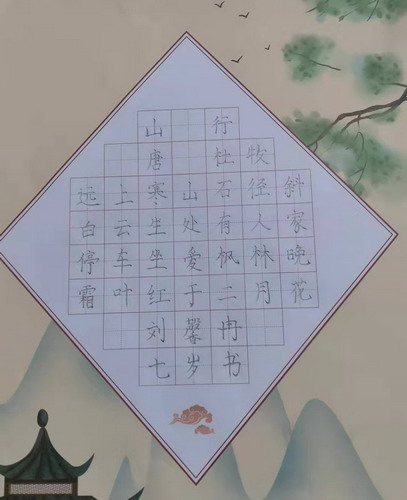 山 行
唐 杜牧
远上寒山石径斜
白云生处有人家
停车坐爱枫林晚
霜叶红于二月花
刘馨冉
七岁书